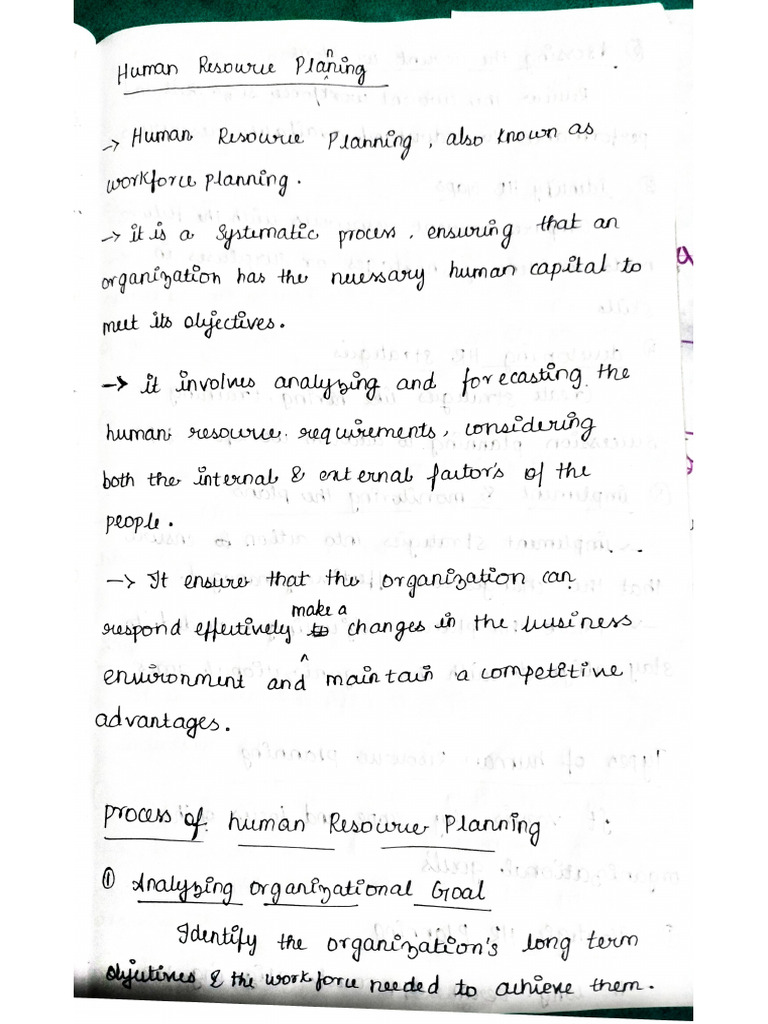 Human Resource Planning
→ Human Resource Planning, also known as
workforce planning.
→ it is a systematic process. ensuring that an
organization has the necessary human capital to
meet its objectives.
→ it involves analyzing and forecasting the
human resource requirements, considering
both the internal & external factors of the
people.
→ It ensure that the organization can
respond effectively make a changes in the business
environment and maintain a competitive
advantages.
process of human Resource Planning
① Analyzing organizational Goal
Identify the organization's long term
objectives & the workforce needed to achieve them.